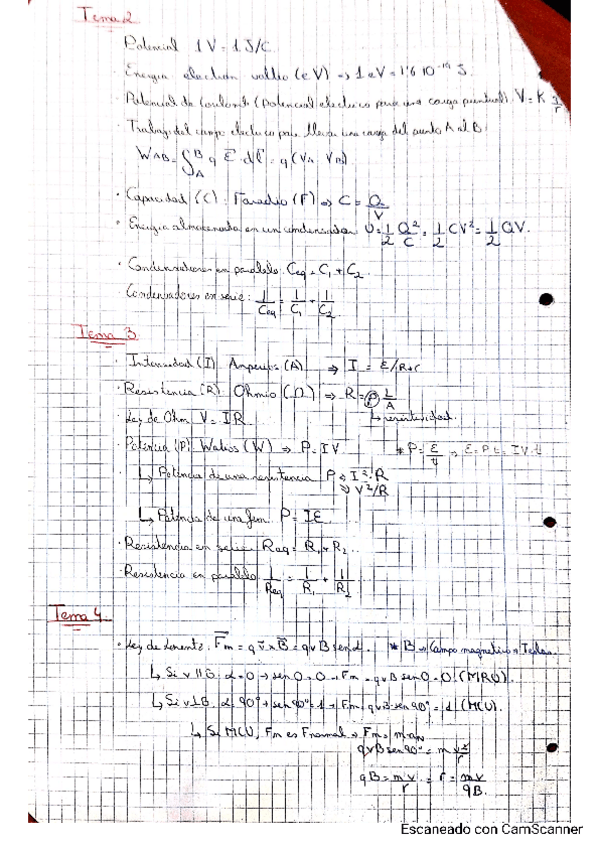 Tema 2
Potencial 1 V = 1 J/C.
Energía electrón voltio (eV) => 1 eV = 1'6 10⁻¹⁹ J.
· Potencial de Coulomb (Potencial eléctrico para una carga puntual). V = K q/r
· Trabajo del campo eléctrico para llevar una carga del punto A al B:
W_AB = ∫_A^B q E⃗ · dl⃗ = q (V_A - V_B)
· Capacidad (C). Faradio (F) => C = Q/V
· Energía almacenada en un condensador U = 1/2 Q²/C = 1/2 CV² = 1/2 QV.
· Condensadores en paralelo: Ceq = C₁ + C₂.
Condensadores en serie: 1/Ceq = 1/C₁ + 1/C₂
Tema 3
· Intensidad (I) Amperios (A). => I = ε/R+r
· Resistencia (R). Ohmio (Ω) => R = ρ L/A
↳ resistividad.
· Ley de Ohm V = IR.
· Potencia (P) Watios (W) => P = IV * P = E/t => E = P t = IV·t
↳ Potencia de una resistencia P => I²·R
=> V²/R
↳ Potencia de una fem. P = Iε
· Resistencia en serie Req = R₁ + R₂.
· Resistencia en paralelo 1/Req = 1/R₁ + 1/R₂
Tema 4
· Ley de Lorentz. F⃗m = q v⃗ x B⃗ = q v B sen α. * B => Campo magnético => Teslas.
↳ Si v || B, α = 0 → sen 0 = 0 → Fm = q v B sen 0 = 0 (MRU).
↳ Si v ⊥ B, α 90° → sen 90° = 1 → Fm = q v B sen 90° = (MCU).
↳ Si MCU, Fm es Fnormal => Fm = m a_N
q v B sen 90° = m v²/r
qB = mv/r = r = mv/qB.
Escaneado con CamScanner